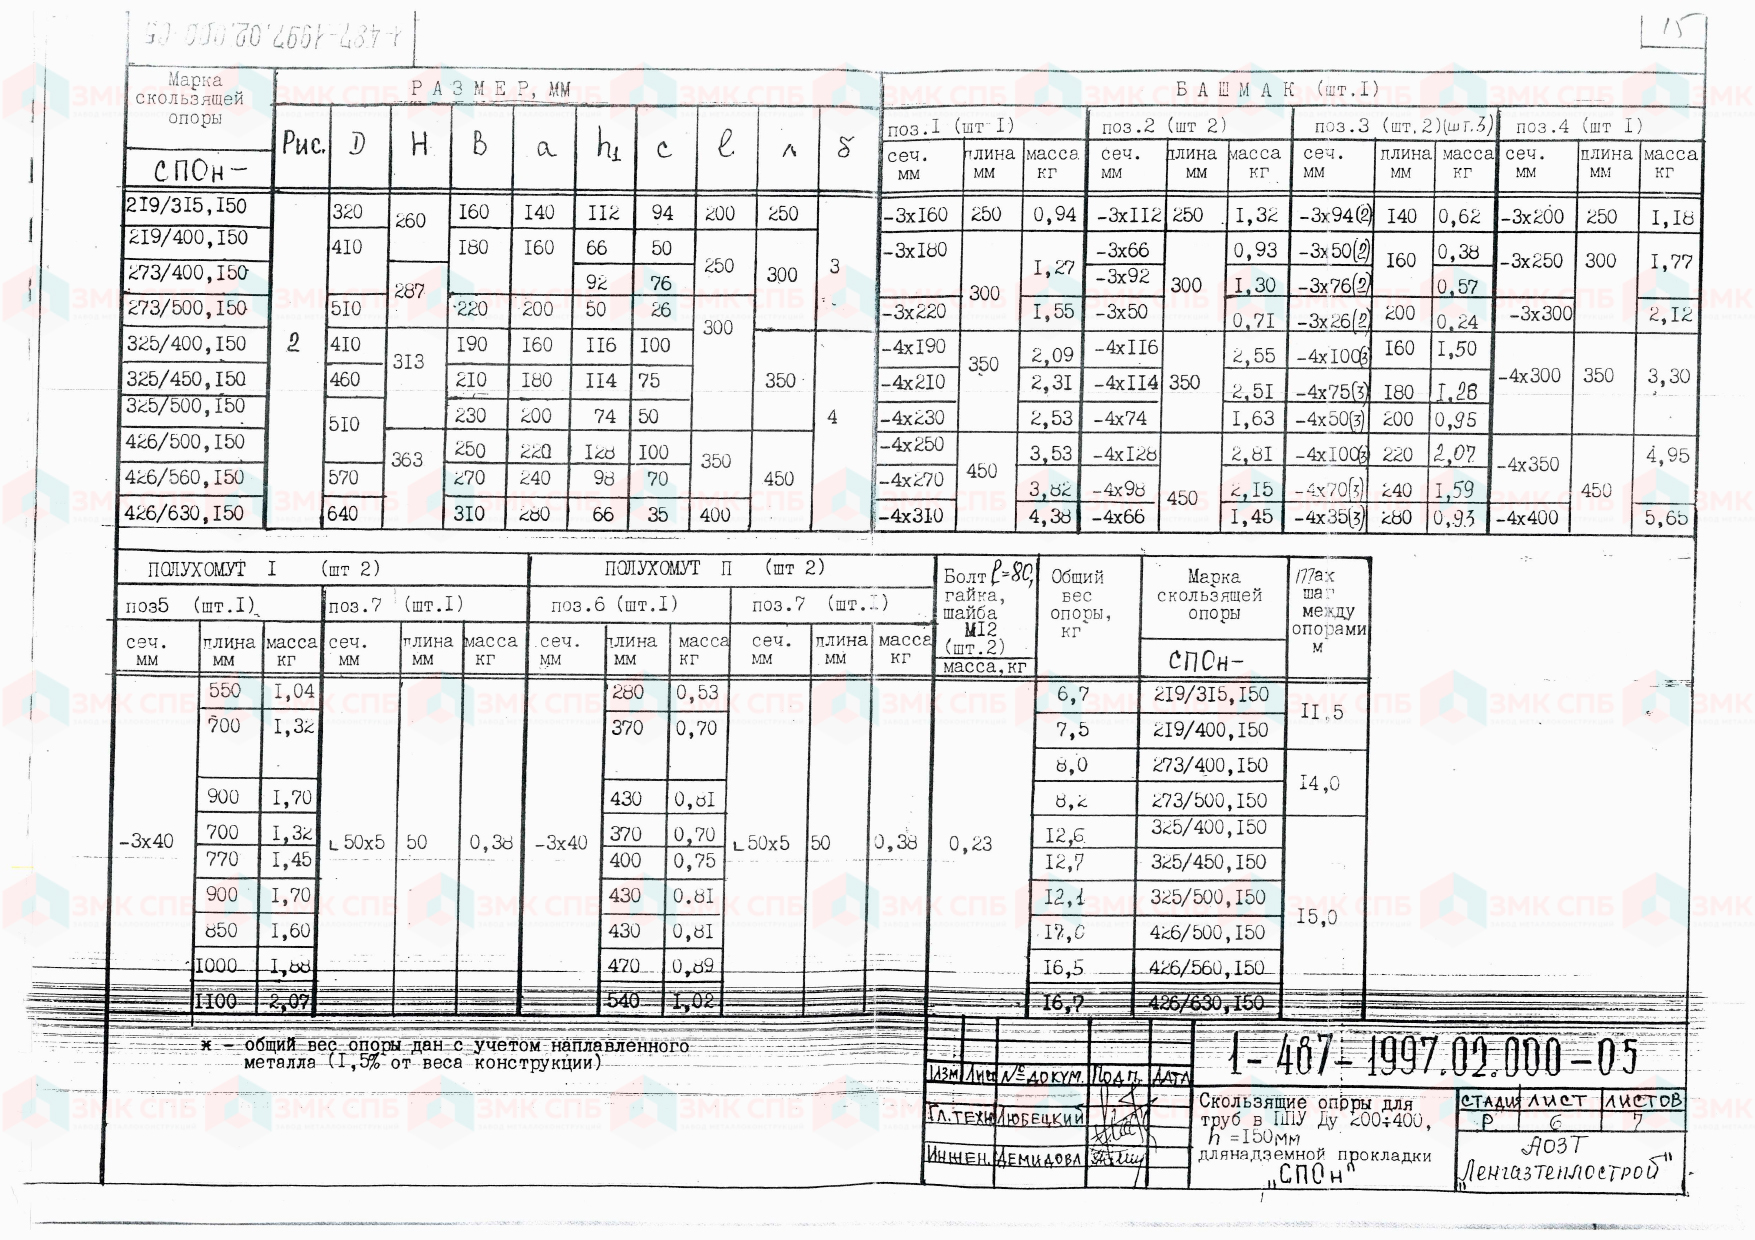 1-487-1997.02.000-05
15
Марка скользящей опоры
РАЗМЕР, ММ
БАШМАК (шт.I)
СПОн-
Рис. D H B a h1 c l л δ
поз.I (шт I) поз.2 (шт 2) поз.3 (шт.2)(шт.3) поз.4 (шт I)
сеч. мм длина мм масса кг сеч. мм длина мм масса кг сеч. мм длина мм масса кг сеч. мм длина мм масса кг
219/315,150 2 320 260 160 140 112 94 200 250 3 -3х160 250 0,94 -3х112 250 1,32 -3х94(2) 140 0,62 -3х200 250 1,18
219/400,150 410 180 160 66 50 250 300 -3х180 300 1,27 -3х66 300 0,93 -3х50(2) 160 0,38 -3х250 300 1,77
273/400,150 287 92 76 -3х92 1,30 -3х76(2) 0,57
273/500,150 510 220 200 50 26 300 -3х220 1,55 -3х50 0,71 -3х26(2) 200 0,24 -3х300 2,12
325/400,150 410 313 190 160 116 100 350 4 -4х190 350 2,09 -4х116 350 2,55 -4х100(3) 160 1,50 -4х300 350 3,30
325/450,150 460 210 180 114 75 -4х210 2,31 -4х114 2,51 -4х75(3) 180 1,28
325/500,150 510 230 200 74 50 -4х230 2,53 -4х74 1,63 -4х50(3) 200 0,95
426/500,150 363 250 220 128 100 350 450 -4х250 450 3,53 -4х128 450 2,81 -4х100(3) 220 2,07 -4х350 450 4,95
426/560,150 570 270 240 98 70 -4х270 3,82 -4х98 2,15 -4х70(3) 240 1,59
426/630,150 640 310 280 66 35 400 -4х310 4,38 -4х66 1,45 -4х35(3) 280 0,93 -4х400 5,65
ПОЛУХОМУТ I (шт 2) ПОЛУХОМУТ П (шт 2)
Болт l=80, гайка, шайба М12 (шт.2) масса,кг
Общий вес опоры, кг
Марка скользящей опоры СПОн-
Max шаг между опорами м
поз5 (шт.I) поз.7 (шт.I) поз.6 (шт.I) поз.7 (шт.I)
сеч. мм длина мм масса кг сеч. мм длина мм масса кг сеч. мм длина мм масса кг сеч. мм длина мм масса кг
550 1,04 280 0,53 6,7 219/315,150 11,5
700 1,32 370 0,70 7,5 219/400,150
8,0 273/400,150 14,0
900 1,70 430 0,81 8,2 273/500,150
-3х40 700 1,32 ∟50х5 50 0,38 -3х40 370 0,70 ∟50х5 50 0,38 0,23 12,6 325/400,150 15,0
770 1,45 400 0,75 12,7 325/450,150
900 1,70 430 0,81 12,1 325/500,150
850 1,60 430 0,81 426/500,150
1000 1,88 470 0,89 16,5 426/560,150
1100 2,07 540 1,02 16,7 426/630,150
ж - общий вес опоры дан с учетом наплавленного
металла (1,5% от веса конструкции)
1-487-1997.02.000-05
ИЗМ Лист № ДОКУМ. ПОДП. ДАТА
ГЛ.ТЕХН ЛЮБЕЦКИЙ
ИНЖЕН. ДЕМИДОВА
Скользящие опоры для
труб в ППУ Ду 200÷400,
h =150мм
длянадземной прокладки
„СПОн"
СТАДИЯ ЛИСТ ЛИСТОВ
Р 6 7
АОЗТ
„Ленгазтеплострой"
ЗМК СПБ